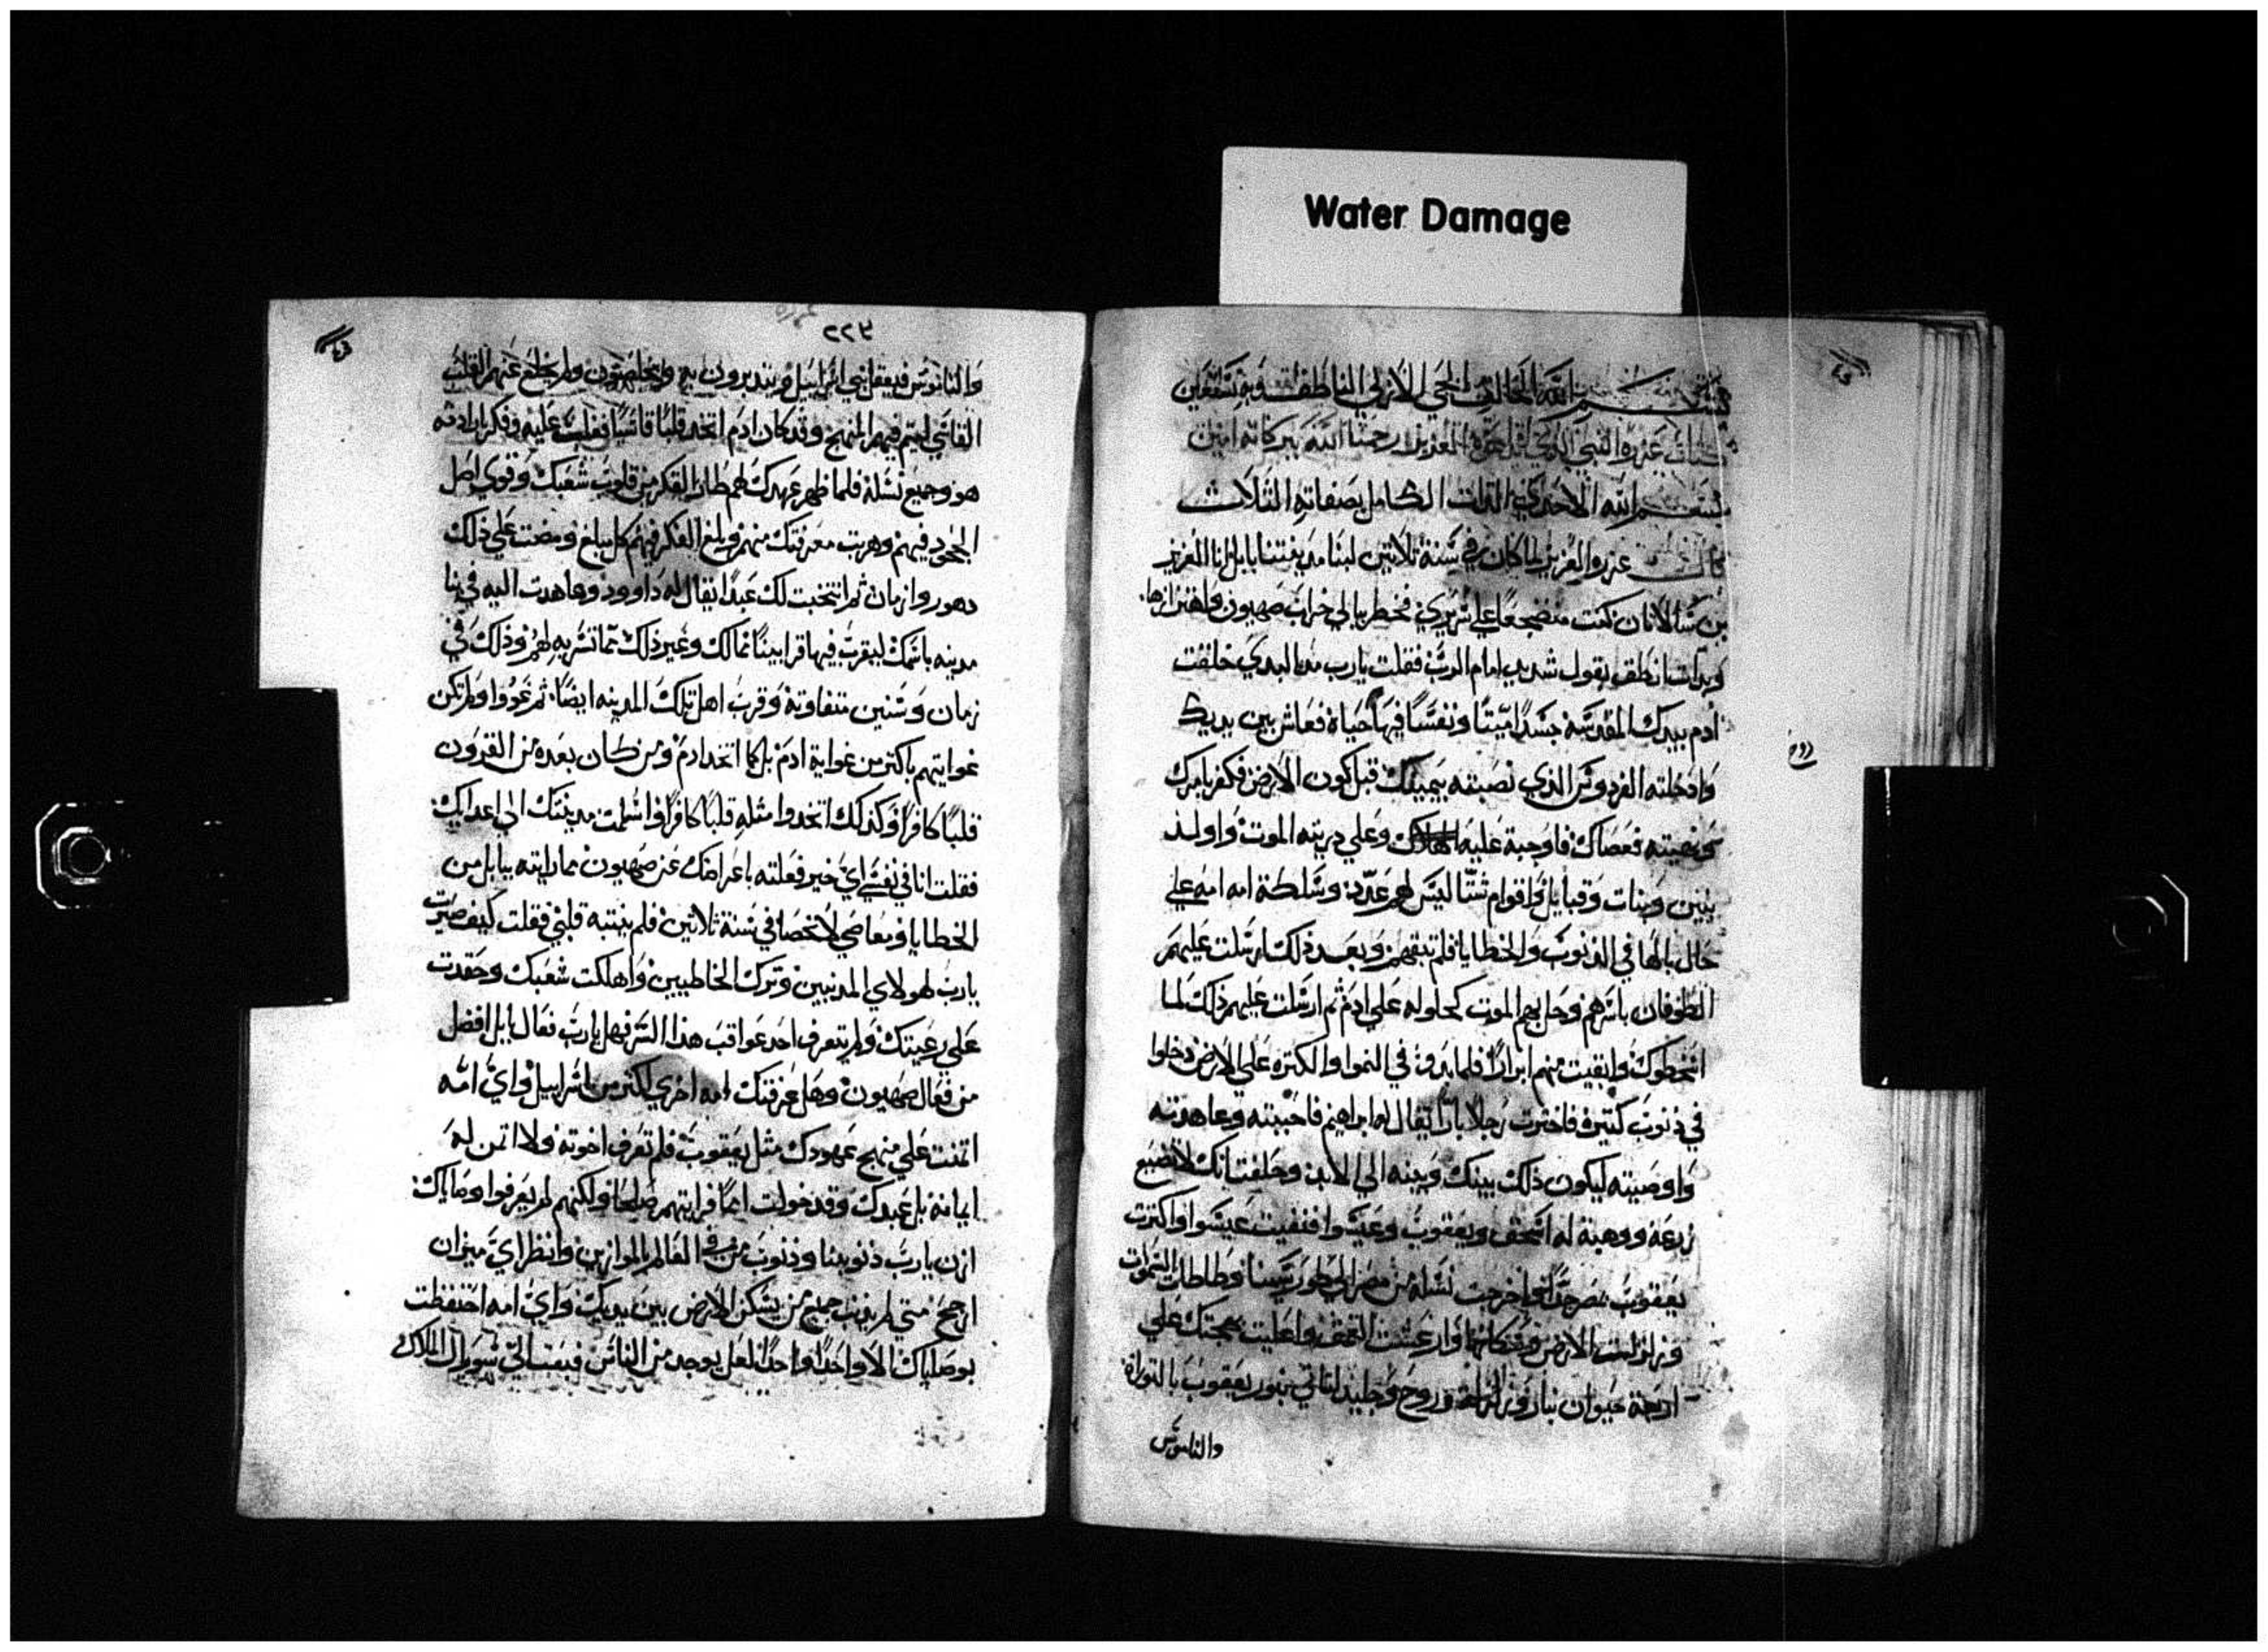 Water Damage
بسم الله الخالق الحي الازلي الناطق وبه نستعين
كتاب عزره النبي الذي العزيز رحمنا الله ببركاته امين
بسم الله الاحدي الذات الكامل بصفاته الثلاث
قال عزرو العزيز لما كان في سنة ثلاثين لبنا مدينتنا بابل انا العزيز
بن شالاتان كنت منضجعا علي سريري فخطر ببالي خراب صهيون
وبدات انطق بقول شديد امام الرب فقلت يارب خلقت
ادم بيدك المقدسة جسدا ميتا ونفسا فيها حياة فعاش بين يديك
وادخلته الفردوس الذي نصبته بيمينك قبل كون الارض فكفر بامرك
ونهيته فعصاك فاوجبة عليه الهلاك وعلي دريته الموت واولد
بنين وبنات وقبايل واقوام شتا ليس لهم عدد وسلطة امه امه علي
حال بالها في الذنوب والخطايا فلم تبقهم وبعد ذلك ارسلت عليهم
الطوفان باسرهم وحل بهم الموت كحلوله علي ادم ثم ارسلت عليهم ذلك لما
اسخطوك وابقيت منهم ابرارا فلما بدوا في النموا والكتره علي الارض دخلوا
في ذنوب كتيرة فاخترت رجلا بارا يقال له ابراهيم فاحببته وعاهدته
واوصيته ليكون ذلك بينك وبينه الي الابد وحلفت انك لا تضيع
زرعه ووهبة له اسحق ويعقوب وعيسوا فنفيت عيسوا واكترت
يعقوب اخرجت نسله من مصر الي طور سينا وطاطات السموات
وزلزلت الارض وارعشت العمق واعليت علي
اربعة حيوان بنار وزلزلة وروح وجليد لتاتي بنور يعقوب بالتوراة
والناموس
روح
٢٢٣
والناموس فيعقل بني اسراييل ويتدبرون به ولم يخلع عنهم القلب
القاسي ليتم فيهم المنهج وقد كان ادم اتخد قلبا قاسيا فغلب عليه وفكر
هو وجميع نسله فلما ظهر عهدك لهم طار الفكر من قلوب شعبك وقوي اصل
الجحود فيهم وهربت معرفتك منهم وبلغ الفكر فيهم كل مبلغ ومضت علي ذلك
دهور وازمان ثم انتخبت لك عبدا يقال له داوود وعاهدت اليه في بنا
مدينه باسمك ليقرب فيها قرابينا لك وغير ذلك وذلك في
زمان وسنين متفاوتة وقرب اهل تلك المدينه ايضا ثم غووا ولم تكن
غوايتهم باكتر من غواية ادم بل كما اتخد ادم ومن كان بعده من القرون
قلبا كافرا وكذلك اتخدوا مثله قلبا كافرا واسلمت مدينتك الي اعدايك
فقلت انا في نفسي اي خير فعلته باعراضك عن صهيون مما رايته ببابل من
الخطايا ومعاصي لا تحصا في سنة ثلاتين فلم ينتبه قلبي فقلت كيف صبرت
يارب لهولاي المدنبين وترك الخاطيين واهلكت شعبك وحقدت
علي رعيتك ولم يتعرف احد عواقب هذا السر فهل يارب فعال بابل افضل
من فعال صهيون وهل عرفتك امه اخري اكتر من اسراييل واي امه
اتمنت علي منهج عهودك مثل يعقوب فلم تعرف اخوته ولا اتمن له
ايمانه بل عبدك وقد خولت امما فرايتهم صلحا ولكنهم لم يعرفوا وصاياك
ازن يارب ذنوبنا وذنوب من في العالم بالموازين وانظر اي ميزان
ارجح متي لم يذنب جميع من يسكن الارض بين يديك واي امه احتفظت
بوصاياك الا واحدا واحدا لعل يوجد من الناس فبعث الي سوريال الملاك